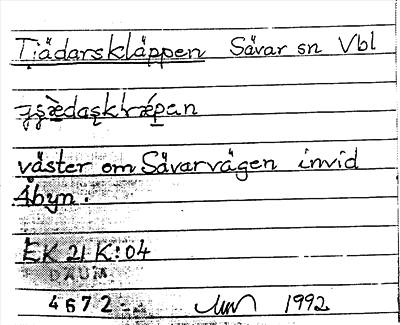 Tjädarskläppen Sävar sn Vbl
väster om Sävarvägen invid
Åbyn.
EK 21 K:04
DAUM
4672 1992